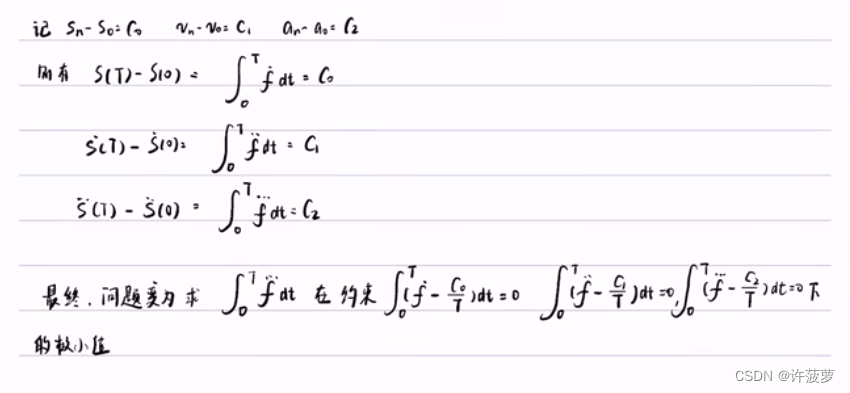 记 Sn - S0 = C0 Vn - V0 = C1 an - a0 = C2
则有 S(T) - S(0) = ∫₀ᵀ ḟ dt = C0
Ṡ(T) - Ṡ(0) = ∫₀ᵀ f̈ dt = C1
S̈(T) - S̈(0) = ∫₀ᵀ f⃛ dt = C2
最终,问题变为求 ∫₀ᵀ f⃛ dt 在约束 ∫₀ᵀ (ḟ - C0/T) dt = 0 ∫₀ᵀ (f̈ - C1/T) dt = 0, ∫₀ᵀ (f⃛ - C2/T) dt = 0 下
的极小值
CSDN @许菠萝